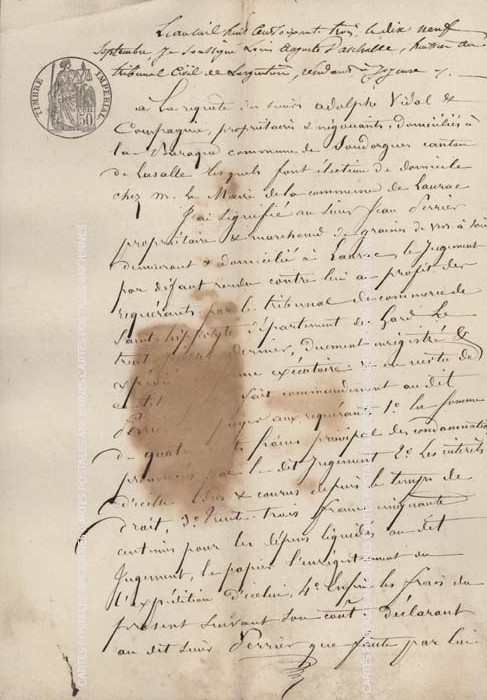 L'an mil huit cent soixante trois, le dix neuf
Septembre, Je soussigné Louis Auguste Paschalle, huissier au
tribunal Civil de Largentière, résidant à Joyeuse
TIMBRE IMPÉRIAL
50
à la requête du sieur adolphe Vidal &
Compagnie, propriétaires & négociants, domiciliés à
la Baraque commune de Soudorgues canton
de Lasalle lesquels font élection de domicile
chez m. le Maire de la commune de Laurac
J'ai signifié au sieur Jean Perrier
propriétaire & marchand de grains de vers à soie
demeurant & domicilié à Laurac, le Jugement
par défaut rendu contre lui au profit des
requérants par le tribunal de commerce de
Saint-hippolyte département du Gard le
trente dernier, duement enregistré &
exécutoire & en vertu de
fait commandement au dit
Perrier payer aux requérants 1° la somme
de quatre francs principal des condamnations
prononcés par le dit Jugement 2° Les intérêts
d'icelle & courus depuis le temps de
droit, 3° trente trois francs cinquante
centimes pour les dépens liquidés au dit
Jugement, le papier l'enregistrement ou
l'expédition d'icelui, 4° Enfin les frais du
présent suivant son coût. Déclarant
au dit sieur Perrier que faute par lui
CARTES POSTALES ANCIENNES